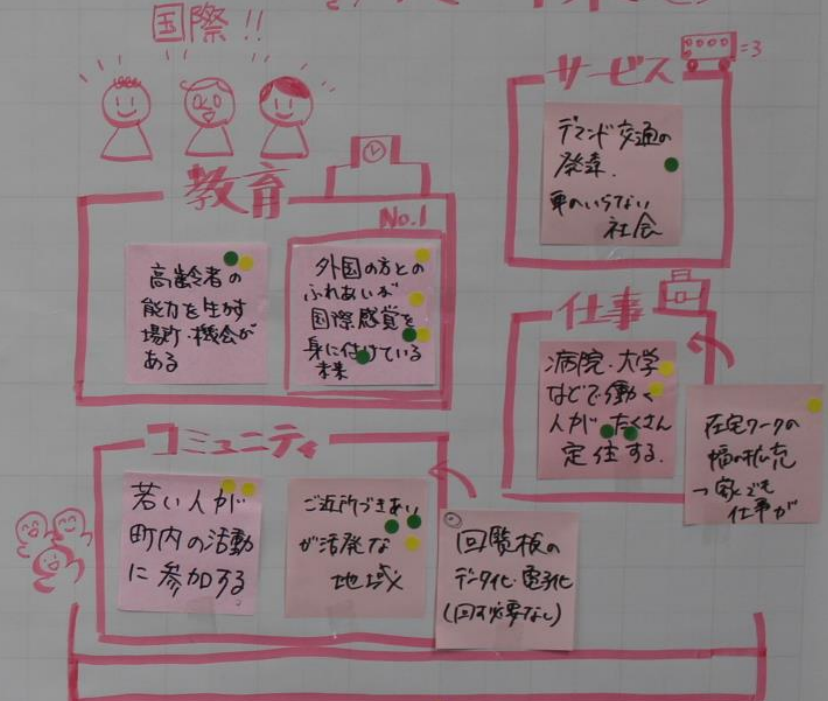 国際!!
サービス
=3
デマンド交通の
発達.
車のいらない
社会
教育
No.1
高齢者の
能力を生かす
場所・機会が
ある
外国の方との
ふれあいが
国際感覚を
身に付けている
未来
仕事
病院・大学
などで働く
人が たくさん
定住する.
在宅ワークの
幅の拡充
→家でも
仕事が
コミュニティ
若い人が
町内の活動
に参加する
ご近所づきあい
が活発な
地域
回覧板の
データ化・電子化
(回す必要なし)